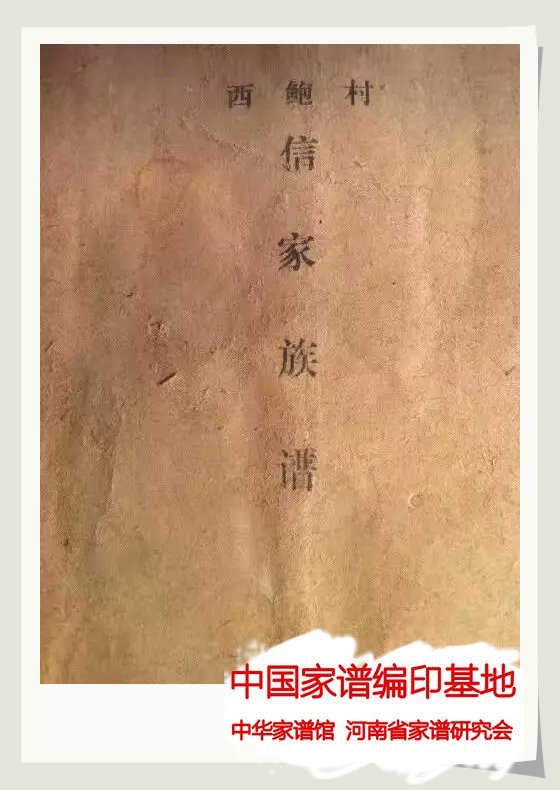 西鲍村
信家族谱
中国家谱编印基地
中华家谱馆 河南省家谱研究会